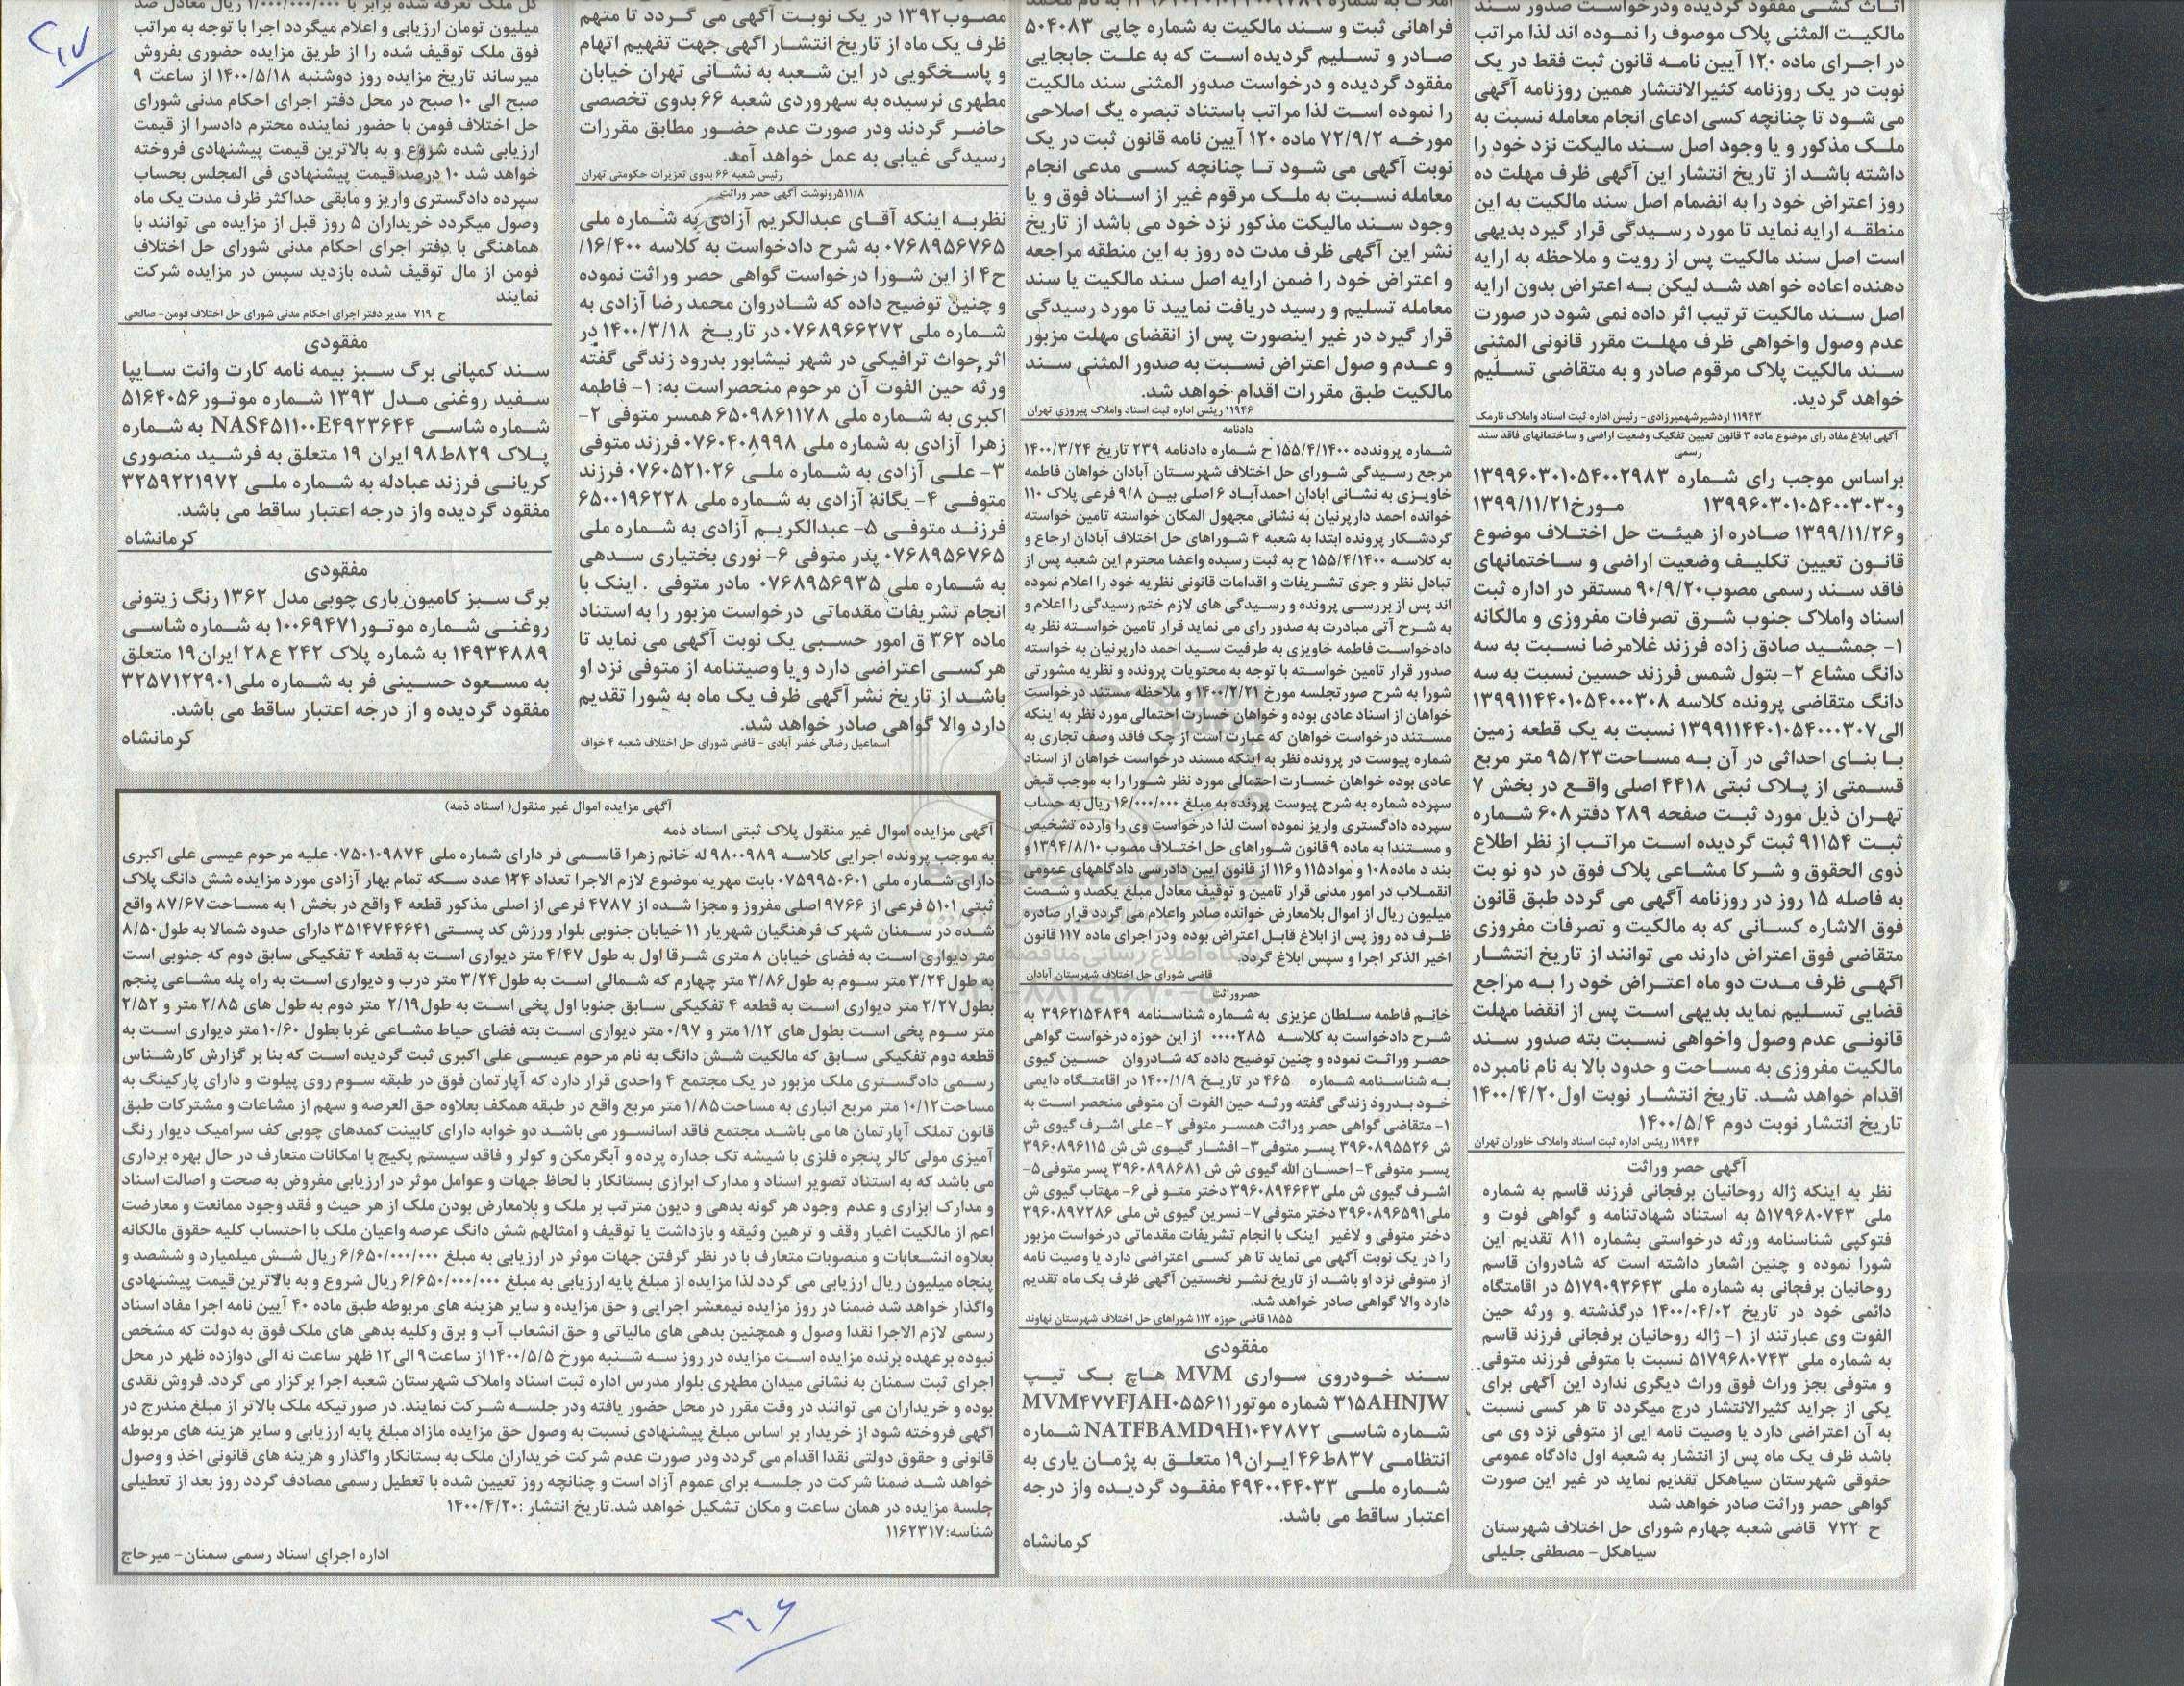 اثاث کشی مفقود گردیده ودرخواست صدور سند
مالکیت المثنی پلاک موصوف را نموده اند لذا مراتب
در اجرای ماده ۱۲۰ آیین نامه قانون ثبت فقط در یک
نوبت در یک روزنامه کثیرالانتشار همین روزنامه آگهی
می شود تا چنانچه کسی ادعای انجام معامله نسبت به
ملک مذکور و یا وجود اصل سند مالیکت نزد خود را
داشته باشد از تاریخ انتشار این آگهی ظرف مهلت ده
روز اعتراض خود را به انضمام اصل سند مالکیت به این
منطقه ارایه نماید تا مورد رسیدگی قرار گیرد بدیهی
است اصل سند مالکیت پس از رویت و ملاحظه به ارایه
دهنده اعاده خو اهد شد لیکن به اعتراض بدون ارایه
اصل سند مالکیت ترتیب اثر داده نمی شود در صورت
عدم وصول واخواهی ظرف مهلت مقرر قانونی المثنی
سند مالکیت پلاک مرقوم صادر و به متقاضی تسلیم
خواهد گردید.
۱۱۹۴۳ اردشیرشهمیرزادی- رئیس اداره ثبت اسناد واملاک نارمک
آگهی ابلاغ مفاد رای موضوع ماده ۳ قانون تعیین تفکیک وضعیت اراضی و ساختمانهای فاقد سند
رسمی
براساس موجب رای شماره ۱۳۹۹۶۰۳۰۱۰۵۴۰۰۲۹۸۳
و۱۳۹۹۶۰۳۰۱۰۵۴۰۰۳۰۳۰ مورخ۱۳۹۹/۱۱/۲۱
و۱۳۹۹/۱۱/۲۶ صادره از هیئت حل اختلاف موضوع
قانون تعیین تکلیف وضعیت اراضی و ساختمانهای
فاقد سند رسمی مصوب۹۰/۹/۲۰ مستقر در اداره ثبت
اسناد واملاک جنوب شرق تصرفات مفروزی و مالکانه
۱- جمشید صادق زاده فرزند غلامرضا نسبت به سه
دانگ مشاع ۲- بتول شمس فرزند حسین نسبت به سه
دانگ متقاضی پرونده کلاسه ۱۳۹۹۱۱۴۴۰۱۰۵۴۰۰۰۳۰۸
الی۱۳۹۹۱۱۴۴۰۱۰۵۴۰۰۰۳۰۷ نسبت به یک قطعه زمین
با بنای احداثی در آن به مساحت۹۵/۲۳ متر مربع
قسمتی از پلاک ثبتی ۴۴۱۸ اصلی واقع در بخش ۷
تهران ذیل مورد ثبت صفحه ۲۸۹ دفتر۶۰۸ شماره
ثبت ۹۱۱۵۴ ثبت گردیده است مراتب از نظر اطلاع
ذوی الحقوق و شرکا مشاعی پلاک فوق در دو نو بت
به فاصله ۱۵ روز در روزنامه آگهی می گردد طبق قانون
فوق الاشاره کسانی که به مالکیت و تصرفات مفروزی
متقاضی فوق اعتراض دارند می توانند از تاریخ انتشار
اگهی ظرف مدت دو ماه اعتراض خود را به مراجع
قضایی تسلیم نماید بدیهی است پس از انقضا مهلت
قانونی عدم وصول واخواهی نسبت بته صدور سند
مالکیت مفروزی به مساحت و حدود بالا به نام نامبرده
اقدام خواهد شد. تاریخ انتشار نوبت اول۱۴۰۰/۴/۲۰
تاریخ انتشار نوبت دوم ۱۴۰۰/۵/۴
۱۱۹۴۴ ریئس اداره ثبت اسناد واملاک خاوران تهران
آگهی حصر وراثت
نظر به اینکه ژاله روحانیان برفجانی فرزند قاسم به شماره
ملی ۵۱۷۹۶۸۰۷۴۳ به استناد شهادتنامه و گواهی فوت و
فتوکپی شناسنامه ورثه درخواستی بشماره ۸۱۱ تقدیم این
شورا نموده و چنین اشعار داشته است که شادروان قاسم
روحانیان برفجانی به شماره ملی ۵۱۷۹۰۹۳۶۴۳ در اقامتگاه
دائمی خود در تاریخ ۱۴۰۰/۰۴/۰۲ درگذشته و ورثه حین
الفوت وی عبارتند از ۱- ژاله روحانیان برفجانی فرزند قاسم
به شماره ملی ۵۱۷۹۶۸۰۷۴۳ نسبت با متوفی فرزند متوفی
و متوفی بجز وراث فوق وراث دیگری ندارد این آگهی برای
یکی از جراید کثیرالانتشار درج میگردد تا هر کسی نسبت
به آن اعتراضی دارد یا وصیت نامه ایی از متوفی نزد وی می
باشد ظرف یک ماه پس از انتشار به شعبه اول دادگاه عمومی
حقوقی شهرستان سیاهکل تقدیم نماید در غیر این صورت
گواهی حصر وراثت صادر خواهد شد
ح ۷۲۲ قاضی شعبه چهارم شورای حل اختلاف شهرستان
سیاهکل- مصطفی جلیلی
فراهانی ثبت و سند مالکیت به شماره چاپی ۵۰۴۰۸۳
صادر و تسلیم گردیده است که به علت جابجایی
مفقود گردیده و درخواست صدور المثنی سند مالکیت
را نموده است لذا مراتب باستناد تبصره یک اصلاحی
مورخه ۷۲/۹/۲ ماده ۱۲۰ آیین نامه قانون ثبت در یک
نوبت آگهی می شود تا چنانچه کسی مدعی انجام
معامله نسبت به ملک مرقوم غیر از اسناد فوق و یا
وجود سند مالیکت مذکور نزد خود می باشد از تاریخ
نشر این آگهی ظرف مدت ده روز به این منطقه مراجعه
و اعتراض خود را ضمن ارایه اصل سند مالکیت یا سند
معامله تسلیم و رسید دریافت نمایید تا مورد رسیدگی
قرار گیرد در غیر اینصورت پس از انقضای مهلت مزبور
و عدم و صول اعتراض نسبت به صدور المثنی سند
مالکیت طبق مقررات اقدام خواهد شد.
۱۱۹۴۶ ریئس اداره ثبت اسناد واملاک پیروزی تهران
دادنامه
شماره پرونده ۱۵۵/۴/۱۴۰۰ ح شماره دادنامه ۲۳۹ تاریخ ۱۴۰۰/۳/۲۴
مرجع رسیدگی شورای حل اختلاف شهرستان آبادان خواهان فاطمه
خاویزی به نشانی ابادان احمدآباد ۶ اصلی بین ۹/۸ فرعی پلاک ۱۱۰
خوانده احمد دارپرنیان به نشانی مجهول المکان خواسته تامین خواسته
گردشکار پرونده ابتدا به شعبه ۴ شوراهای حل اختلاف آبادان ارجاع و
به کلاسه ۱۵۵/۴/۱۴۰۰ ح به ثبت رسیده واعضا محترم این شعبه پس از
تبادل نظر و جری تشریفات و اقدامات قانونی نظریه خود را اعلام نموده
اند پس از بررسی پرونده و رسیدگی های لازم ختم رسیدگی را اعلام و
به شرح آتی مبادرت به صدور رای می نماید قرار تامین خواسته نظر به
دادخواست فاطمه خاویزی به طرفیت سید احمد دارپرنیان به خواسته
صدور قرار تامین خواسته با توجه به محتویات پرونده و نظریه مشورتی
شورا به شرح صورتجلسه مورخ ۱۴۰۰/۲/۲۱ و ملاحظه مستند درخواست
خواهان از اسناد عادی بوده و خواهان خسارت احتمالی مورد نظر به اینکه
مستند درخواست خواهان که عبارت است از چک فاقد وصف تجاری به
شماره پیوست در پرونده نظر به اینکه مسند درخواست خواهان از اسناد
عادی بوده خواهان خسارت احتمالی مورد نظر شورا را به موجب قبض
سپرده شماره به شرح پیوست پرونده به مبلغ ۱۶/۰۰۰/۰۰۰ ریال به حساب
سپرده دادگستری واریز نموده است لذا درخواست وی را وارده تشخیص
و مستندا به ماده ۹ قانون شوراهای حل اختلاف مصوب ۱۳۹۴/۸/۱۰ و
بند د ماده۱۰۸ و مواد۱۱۵ و ۱۱۶ از قانون ایین دادرسی دادگاههای عمومی
انقملاب در امور مدنی قرار تامین و توقیف معادل مبلغ یکصد و شصت
میلیون ریال از اموال بلامعارض خوانده صادر واعلام می گردد قرار صادره
ظرف ده روز پس از ابلاغ قابل اعتراض بوده ودر اجرای ماده ۱۱۷ قانون
اخیر الذکر اجرا و سپس ابلاغ گردد.
قاضی شورای حل اختلاف شهرستان آبادان
حصروراثت
خانم فاطمه سلطان عزیزی به شماره شناسنامه ۳۹۶۲۱۵۴۸۴۹ به
شرح دادخواست به کلاسه ۰۰۰۰۲۸۵ از این حوزه درخواست گواهی
حصر وراثت نموده و چنین توضیح داده که شادروان حسین گیوی
به شناسنامه شماره ۴۶۵ در تاریخ ۱۴۰۰/۱/۹ در اقامتگاه دایمی
خود بدرود زندگی گفته ورثه حین الفوت آن متوفی منحصر است به
۱- متقاضی گواهی حصر وراثت همسر متوفی ۲- علی اشرف گیوی ش
ش ۳۹۶۰۸۹۵۵۲۶ پسر متوفی۳- افشار گیوی ش ش ۳۹۶۰۸۹۶۱۱۵
پسر متوفی۴- احسان الله گیوی ش ش ۳۹۶۰۸۹۸۶۸۱ پسر متوفی۵-
اشرف گیوی ش ملی۳۹۶۰۸۹۴۶۴۳ دختر متو فی۶- مهتاب گیوی ش
ملی۳۹۶۰۸۹۶۵۹۱ دختر متوفی۷- نسرین گیوی ش ملی ۳۹۶۰۸۹۷۲۸۶
دختر متوفی و لاغیر اینک با انجام تشریفات مقدماتی درخواست مزبور
را در یک نوبت آگهی می نماید تا هر کسی اعتراضی دارد یا وصیت نامه
از متوفی نزد او باشد از تاریخ نشر نخستین آگهی ظرف یک ماه تقدیم
دارد والا گواهی صادر خواهد شد.
۱۸۵۵ قاضی حوزه ۱۱۲ شوراهای حل اختلاف شهرستان نهاوند
مفقودی
سند خودروی سواری MVM هاچ بک تیپ
۳۱۵AHNJW شماره موتورMVM۴۷۷FJAH۰۵۵۶۱۱
شماره شاسی NATFBAMD۹H۱۰۴۷۸۷۲ شماره
انتظامی ۸۳۷ط۴۶ ایران۱۹ متعلق به پژمان یاری به
شماره ملی ۴۹۴۰۰۴۴۰۳۳ مفقود گردیده واز درجه
اعتبار ساقط می باشد.
کرمانشاه
مصوب۱۳۹۲ در یک نوبت آگهی می گردد تا متهم
ظرف یک ماه از تاریخ انتشار اگهی جهت تفهیم اتهام
و پاسخگویی در این شعبه به نشانی تهران خیابان
مطهری نرسیده به سهروردی شعبه ۶۶ بدوی تخصصی
حاضر گردند ودر صورت عدم حضور مطابق مقررات
رسیدگی غیابی به عمل خواهد آمد.
رئیس شعبه ۶۶ بدوی تعزیرات حکومتی تهران
۵۱۱/۸رونوشت آگهی حصر وراثت
نظربه اینکه آقای عبدالکریم آزادی به شماره ملی
۰۷۶۸۹۵۶۷۶۵ به شرح دادخواست به کلاسه ۱۶/۴۰۰/
ح۴ از این شورا درخواست گواهی حصر وراثت نموده
و چنین توضیح داده که شادروان محمد رضا آزادی به
شماره ملی ۰۷۶۸۹۶۶۲۷۲ در تاریخ ۱۴۰۰/۳/۱۸ در
اثر حواث ترافیکی در شهر نیشابور بدرود زندگی گفته
ورثه حین الفوت آن مرحوم منحصراست به: ۱- فاطمه
اکبری به شماره ملی ۶۵۰۹۸۶۱۱۷۸ همسر متوفی ۲-
زهرا آزادی به شماره ملی ۰۷۶۰۴۰۸۹۹۸ فرزند متوفی
۳- علی آزادی به شماره ملی ۰۷۶۰۵۲۱۰۲۶ فرزند
متوفی ۴- یگانه آزادی به شماره ملی ۶۵۰۰۱۹۶۲۲۸
فرزند متوفی ۵- عبدالکریم آزادی به شماره ملی
۰۷۶۸۹۵۶۷۶۵ پدر متوفی ۶- نوری بختیاری سدهی
به شماره ملی ۰۷۶۸۹۵۶۹۳۵ مادر متوفی . اینک با
انجام تشریفات مقدماتی درخواست مزبور را به استناد
ماده ۳۶۲ ق امور حسبی یک نوبت آگهی می نماید تا
هرکسی اعتراضی دارد و یا وصیتنامه از متوفی نزد او
باشد از تاریخ نشر آگهی ظرف یک ماه به شورا تقدیم
دارد والا گواهی صادر خواهد شد.
اسماعیل رضائی خضر آبادی - قاضی شورای حل اختلاف شعبه ۴ خواف
میلیون تومان ارزیابی و اعلام میگردد اجرا با توجه به مراتب
فوق ملک توقیف شده را از طریق مزایده حضوری بفروش
میرساند تاریخ مزایده روز دوشنبه ۱۴۰۰/۵/۱۸ از ساعت ۹
صبح الی ۱۰ صبح در محل دفتر اجرای احکام مدنی شورای
حل اختلاف فومن با حضور نماینده محترم دادسرا از قیمت
ارزیابی شده شروع و به بالاترین قیمت پیشنهادی فروخته
خواهد شد ۱۰ درصد قیمت پیشنهادی فی المجلس بحساب
سپرده دادگستری واریز و مابقی حداکثر ظرف مدت یک ماه
وصول میگردد خریداران ۵ روز قبل از مزایده می توانند با
هماهنگی با دفتر اجرای احکام مدنی شورای حل اختلاف
فومن از مال توقیف شده بازدید سپس در مزایده شرکت
نمایند
ح ۷۱۹ مدیر دفتر اجرای احکام مدنی شورای حل اختلاف فومن- صالحی
مفقودی
سند کمپانی برگ سبز بیمه نامه کارت وانت سایپا
سفید روغنی مدل ۱۳۹۳ شماره موتور۵۱۶۴۰۵۶
شماره شاسی NAS۴۵۱۱۰۰E۴۹۲۳۶۴۴ به شماره
پلاک ۸۲۹ط۹۸ ایران ۱۹ متعلق به فرشید منصوری
کریانی فرزند عبادله به شماره ملی ۳۲۵۹۲۲۱۹۷۲
مفقود گردیده واز درجه اعتبار ساقط می باشد.
کرمانشاه
مفقودی
برگ سبز کامیون باری چوبی مدل ۱۳۶۲ رنگ زیتونی
روغنی شماره موتور۱۰۰۶۹۴۷۱ به شماره شاسی
۱۴۹۳۴۸۸۹ به شماره پلاک ۲۴۲ ع۲۸ ایران۱۹ متعلق
به مسعود حسینی فر به شماره ملی۳۲۵۷۱۲۲۹۰۱
مفقود گردیده و از درجه اعتبار ساقط می باشد.
کرمانشاه
آگهی مزایده اموال غیر منقول( اسناد ذمه)
آگهی مزایده اموال غیر منقول پلاک ثبتی اسناد ذمه
به موجب پرونده اجرایی کلاسه ۹۸۰۰۹۸۹ له خانم زهرا قاسمی فر دارای شماره ملی ۰۷۵۰۱۰۹۸۷۴ علیه مرحوم عیسی علی اکبری
دارای شماره ملی ۰۷۵۹۹۵۰۶۰۱ بابت مهریه موضوع لازم الاجرا تعداد ۱۲۴ عدد سکه تمام بهار آزادی مورد مزایده شش دانگ پلاک
ثبتی ۵۱۰۱ فرعی از ۹۷۶۶ اصلی مفروز و مجزا شده از ۴۷۸۷ فرعی از اصلی مذکور قطعه ۴ واقع در بخش ۱ به مساحت۸۷/۶۷ واقع
شده در سمنان شهرک فرهنگیان شهریار ۱۱ خیابان جنوبی بلوار ورزش کد پستی ۳۵۱۴۷۴۴۶۴۱ دارای حدود شمالا به طول۸/۵۰
متر دیواری است به فضای خیابان ۸ متری شرقا اول به طول ۴/۴۷ متر دیواری است به قطعه ۴ تفکیکی سابق دوم که جنوبی است
به طول۳/۲۴ متر سوم به طول۳/۸۶ متر چهارم که شمالی است به طول۳/۲۴ متر درب و دیواری است به راه پله مشاعی پنجم
بطول۲/۲۷ متر دیواری است به قطعه ۴ تفکیکی سابق جنوبا اول پخی است به طول۲/۱۹ متر دوم به طول های ۲/۸۵ متر و ۲/۵۲
متر سوم پخی است بطول های ۱/۱۲ متر و ۰/۹۷ متر دیواری است بته فضای حیاط مشاعی غربا بطول ۱۰/۶۰ متر دیواری است به
قطعه دوم تفکیکی سابق که مالکیت شش دانگ به نام مرحوم عیسی علی اکبری ثبت گردیده است که بنا بر گزارش کارشناس
رسمی دادگستری ملک مزبور در یک مجتمع ۴ واحدی قرار دارد که آپارتمان فوق در طبقه سوم روی پیلوت و دارای پارکینگ به
مساحت۱۰/۱۲ متر مربع انباری به مساحت۱/۸۵ متر مربع واقع در طبقه همکف بعلاوه حق العرصه و سهم از مشاعات و مشترکات طبق
قانون تملک آپارتمان ها می باشد مجتمع فاقد اسانسور می باشد دو خوابه دارای کابینت کمدهای چوبی کف سرامیک دیوار رنگ
آمیزی مولی کالر پنجره فلزی با شیشه تک جداره پرده و آبگرمکن و کولر و فاقد سیستم پکیج با امکانات متعارف در حال بهره برداری
می باشد که به استناد تصویر اسناد و مدارک ابرازی بستانکار با لحاظ جهات و عوامل موثر در ارزیابی مفروض به صحت و اصالت اسناد
و مدارک ابزاری و عدم وجود هر گونه بدهی و دیون مترتب بر ملک و بلامعارض بودن ملک از هر حیث و فقد وجود ممانعت و معارضت
اعم از مالکیت اغیار وقف و ترهین وثیقه و بازداشت یا توقیف و امثالهم شش دانگ عرصه واعیان ملک با احتساب کلیه حقوق مالکانه
بعلاوه انشعابات و منصوبات متعارف با در نظر گرفتن جهات موثر در ارزیابی به مبلغ ۶/۶۵۰/۰۰۰/۰۰۰ ریال شش میلمیارد و ششصد و
پنجاه میلیون ریال ارزیابی می گردد لذا مزایده از مبلغ پایه ارزیابی به مبلغ ۶/۶۵۰/۰۰۰/۰۰۰ ریال شروع و به بالاترین قیمت پیشنهادی
واگذار خواهد شد ضمنا در روز مزایده نیمعشر اجرایی و حق مزایده و سایر هزینه های مربوطه طبق ماده ۴۰ آیین نامه اجرا مفاد اسناد
رسمی لازم الاجرا نقدا وصول و همچنین بدهی های مالیاتی و حق انشعاب آب و برق وکلیه بدهی های ملک فوق به دولت که مشخص
نبوده برعهده برنده مزایده است مزایده در روز سه شنبه مورخ ۱۴۰۰/۵/۵ از ساعت۹ الی۱۲ ظهر ساعت نه الی دوازده ظهر در محل
اجرای ثبت سمنان به نشانی میدان مطهری بلوار مدرس اداره ثبت اسناد واملاک شهرستان شعبه اجرا برگزار می گردد. فروش نقدی
بوده و خریداران می توانند در وقت مقرر در محل حضور یافته ودر جلسه شرکت نمایند. در صورتیکه ملک بالاتر از مبلغ مندرج در
اگهی فروخته شود از خریدار بر اساس مبلغ پیشنهادی نسبت به وصول حق مزایده مازاد مبلغ پایه ارزیابی و سایر هزینه های مربوطه
قانونی و حقوق دولتی نقدا اقدام می گردد ودر صورت عدم شرکت خریداران ملک به بستانکار واگذار و هزینه های قانونی اخذ و وصول
خواهد شد ضمنا شرکت در جلسه برای عموم آزاد است و چنانچه روز تعیین شده با تعطیل رسمی مصادف گردد روز بعد از تعطیلی
جلسه مزایده در همان ساعت و مکان تشکیل خواهد شد.تاریخ انتشار :۱۴۰۰/۴/۲۰
شناسه:۱۱۶۲۳۱۷
اداره اجرای اسناد رسمی سمنان- میرحاج